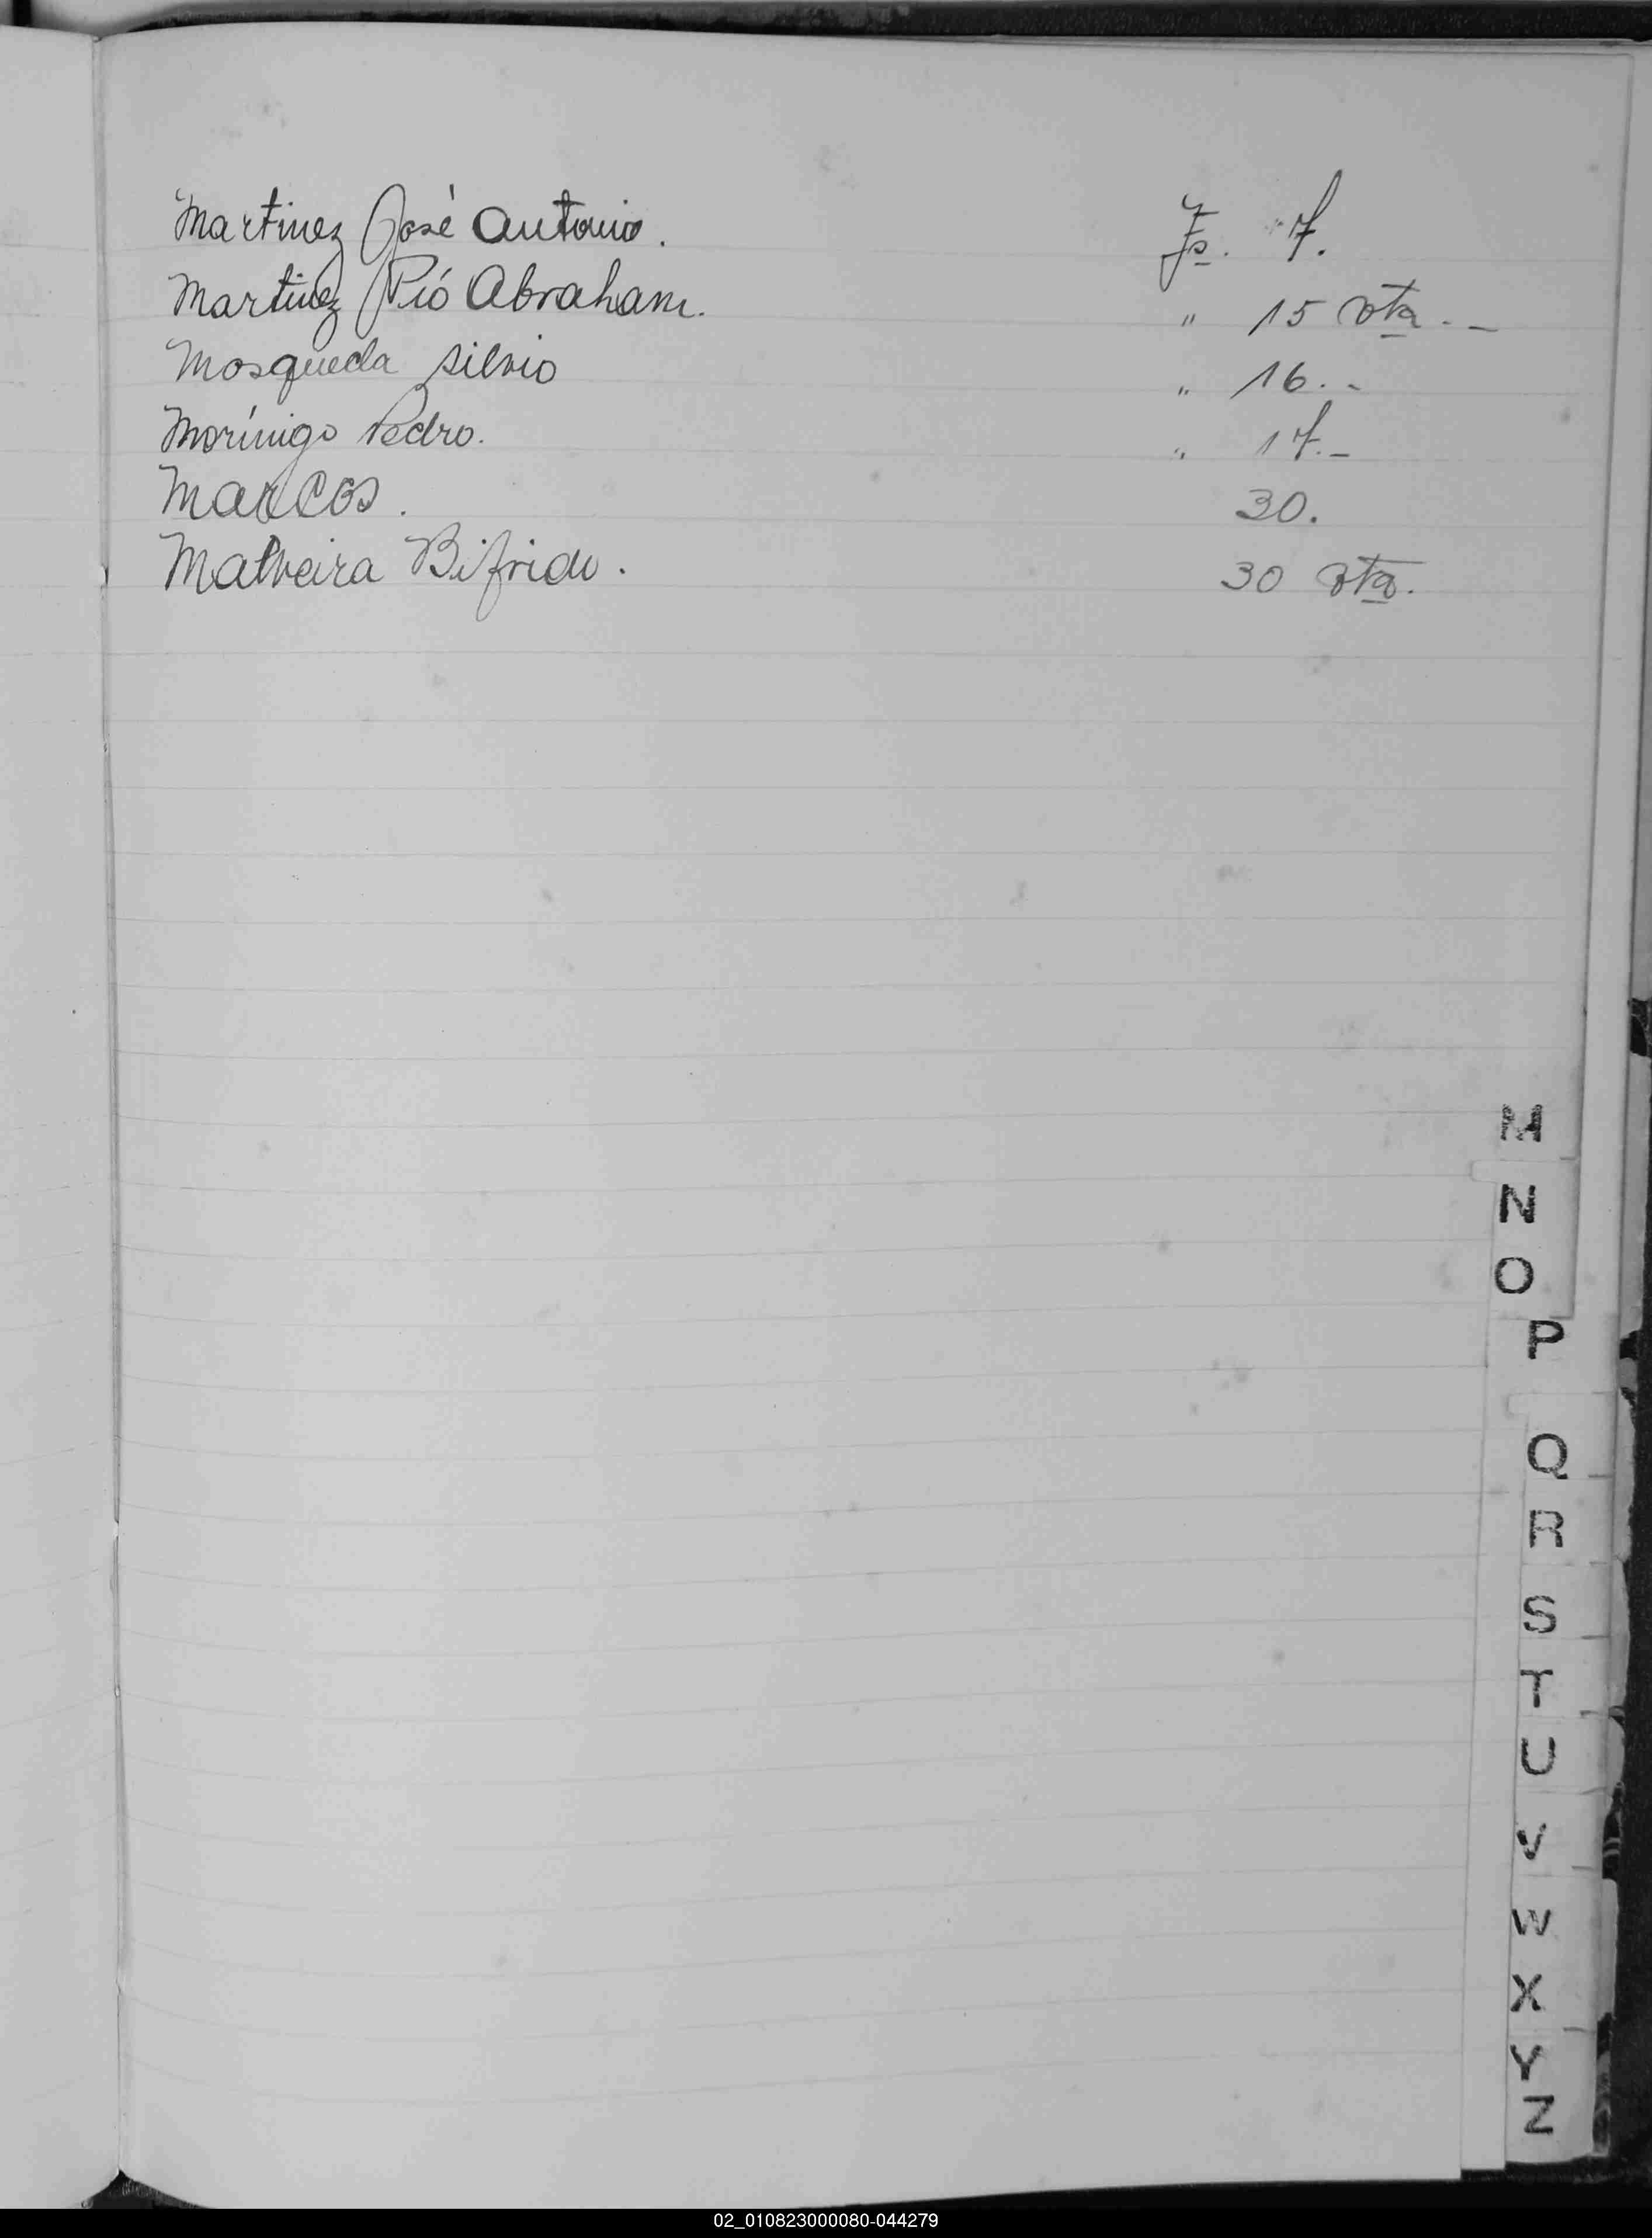 Martinez José Antonio. Fs. 7.
Martinez Pió Abraham. " 15 vta. -
Mosqueda Silvio " 16. -
Morínigo Pedro. " 17. -
Marcos. 30.
Malveira Bifrido. 30 vta.
M
N
O
P
Q
R
S
T
U
V
W
X
Y
Z
02_010823000080-044279